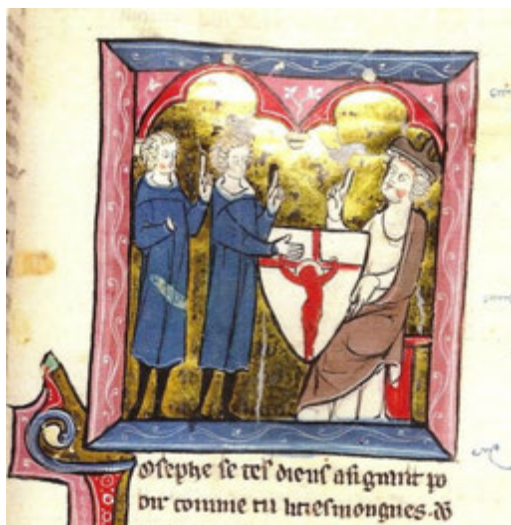 Josephe se tes dieus a si grant po
oir comme tu li tiesmongnes.